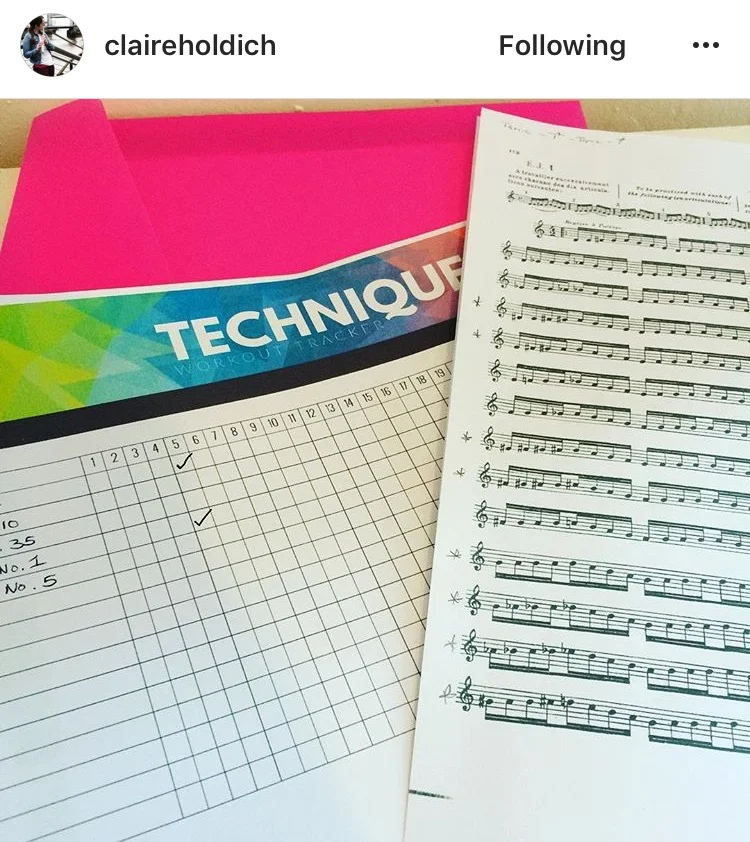 claireholdich
Following
TECHNIQUE
WORKOUT TRACKER
1 2 3 4 5 6 7 8 9 10 11 12 13 14 15 16 17 18 19
10
. 35
No. 1
No. 5
E.J. 1
A travailler successivement
avec chacune des dix articula-
tions suivantes:
To be practiced with each of
the following ten articulations: